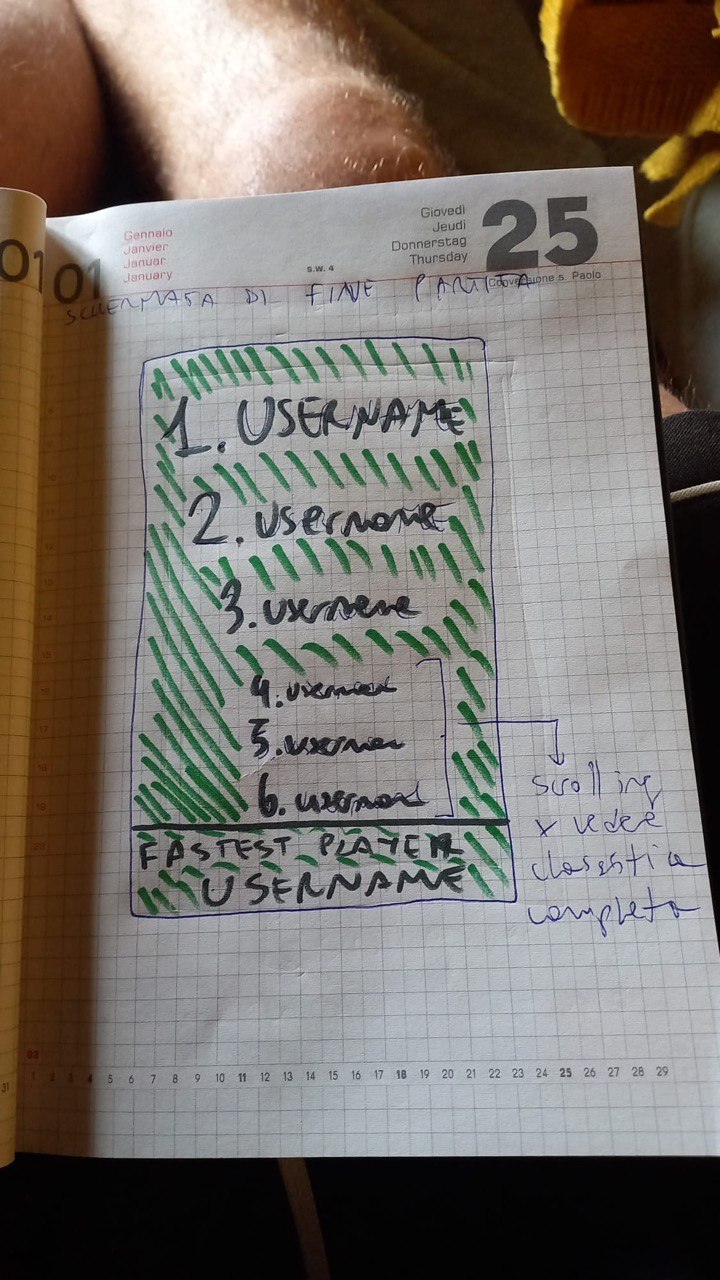 01
01
Gennaio
Janvier
Januar
January
S.W. 4
Giovedì
Jeudi
Donnerstag
Thursday
25
Conversione s. Paolo
SCHERMATA DI FINE PARTITA
1. USERNAME
2. username
3. username
4. username
5. username
6. username
FASTEST PLAYER
USERNAME
scrolling
x vedere
classifica
completa
02
1 2 3 4 5 6 7 8 9 10 11 12 13 14 15 16 17 18 19 20 21 22 23 24 25 26 27 28 29
31